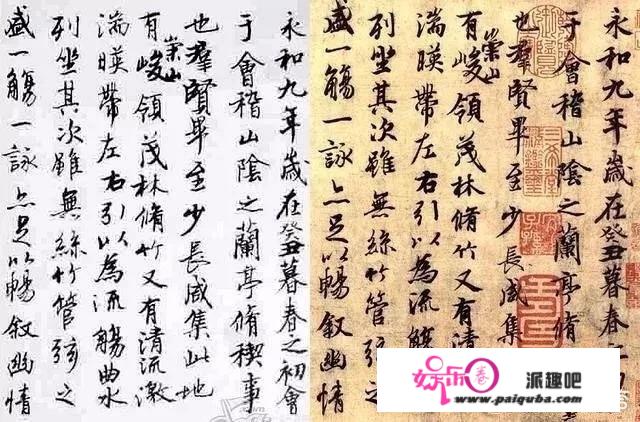 永和九年歲在癸丑暮春之初會
于會稽山陰之蘭亭脩稧事
也羣賢畢至少長咸集此地
有崇山峻領茂林脩竹又有清流激
湍暎帶左右引以為流觴曲水
列坐其次雖無絲竹管弦之
盛一觴一詠亦足以暢敘幽情
永和九年歲在癸丑暮春
于會稽山陰之蘭亭脩
也羣賢畢至少長咸集
有崇山峻領茂林脩竹又有清
湍暎帶左右引以為流觴
列坐其次雖無絲竹管弦之
盛一觴一詠亦足以暢敘幽情
娱乐卷
派趣吧
www.paiquba.com